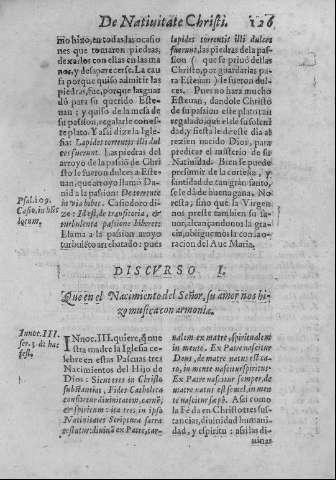 De Natiuitate Christi. 226
mo hizo, en todas las ocasio
nes que tomaron piedras,
dexarlos con ellas en las ma
nos, y desaparecerse. La cau
sa porque quiso admitir las
piedras, fue, porque las guar
dò para su querido Este-
uan; y quiso de la mesa de
su passion, regalarle con este
plato. Y asi dize la Igle-
sia: Lapides torrentis illi dul-
ces fuerunt. Las piedras del
arroyo de la passiõ de Chri
sto le fueron dulces a Este-
uan, que arroyo llama Da-
uid a la passion: De torrente
in via bibet. Casiodoro di-
ze: Idest, de transitoria, &
turbulenta passione bibere.
Llama a la passion arroyo
turbulẽto arrebatado; pues
Psal. 109.
Casio. in hũc
locum.
lapides torrentis illi dulces
fuerunt, las piedras de la pas-
sion (que se priuò dellas
Christo, por guardarlas pa-
ra Esteuan) le fueron dul-
ces. Pues no hara mucho
Esteuan, dandole Christo
de su passion este plato tan
regalado; que el de su solẽni
dad, y fiesta le dè este dia al
rezien nacido Dios, para
predicar el misterio de su
Natiuidad. Bien se puede
presumir de la cortesia, y
santidad de tan gran santo,
se le dà de buena gana. No
resta, sino que la Virgen
nos preste tambien su fa-
uor, alcançandonos la gra-
cia, obliguemosla con la o-
racion del Aue Maria.
DISCVRSO I.
Que en el Nacimiento del Señor, su amor nos hi-
zo musica con armonia.
Innoc. III.
ser. 3. de hac
fest.
INnoc. III. quiere, q̃ nue
stra madre la Iglesia ce-
lebre en estas Pascuas tres
Nacimientos del Hijo de
Dios: Sicut tres in Christo
substantias, Fides Catholica
confitetur diuinitatem, carnẽ,
& spiritum: ita tres in ipso
Natiuitates Scriptura sacra
protestatur: diuinã ex Patre, car-
nalem ex matre, spiritualem
in mente. Ex Patre nascitur
Deus, de matre natus est ca-
ro, in mente nascitur spiritus.
Ex Patre nascitur semper, de
matre natus est semel, in men
te nascitur sæpè. Asi como
la Fè da en Christo tres sus-
tancias, diuinidad humani-
dad, y espiritu: asi ha di-
uinas